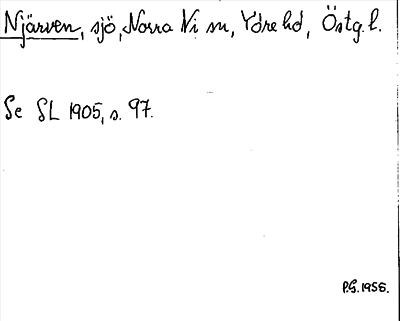 Njärven, sjö, Norra Vi sn, Ydre hd, Östg. l.
Se SL 1905, s. 97.
P.G. 1956.